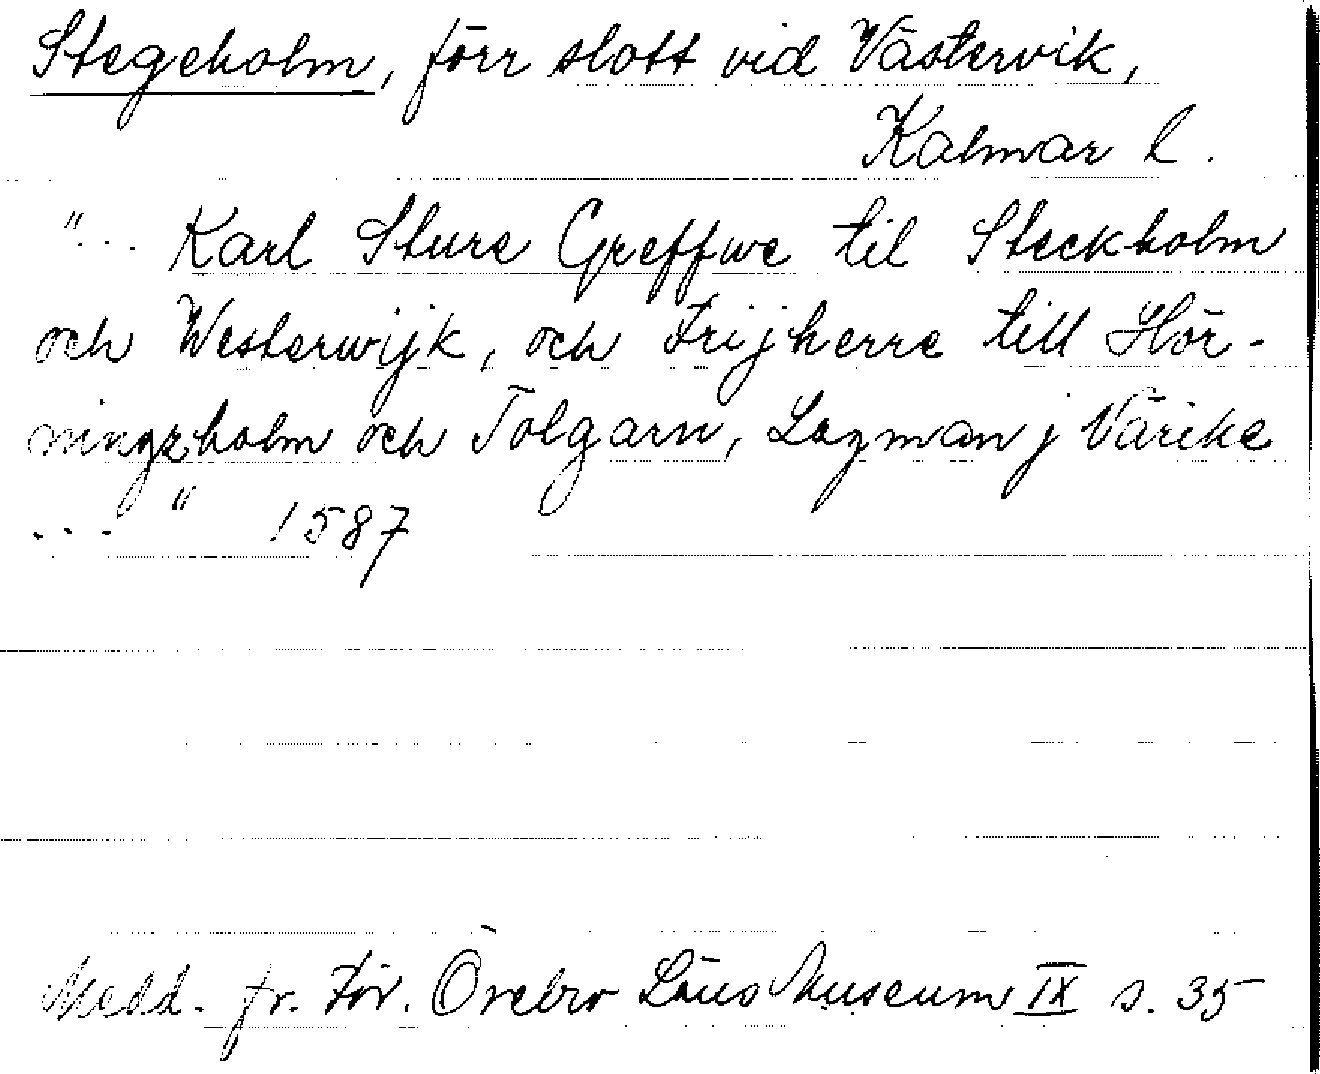 Stegeholm, förr slott vid Västervik,
Kalmar l.
"... Karl Sture Greffwe til Steckholm
och Westerwijk, och Frijherre till Hör-
ningzholm och Tolgarn, Lagman j Värike
... " 1587
Medd. fr. För. Örebro Läns Museum IX s. 35